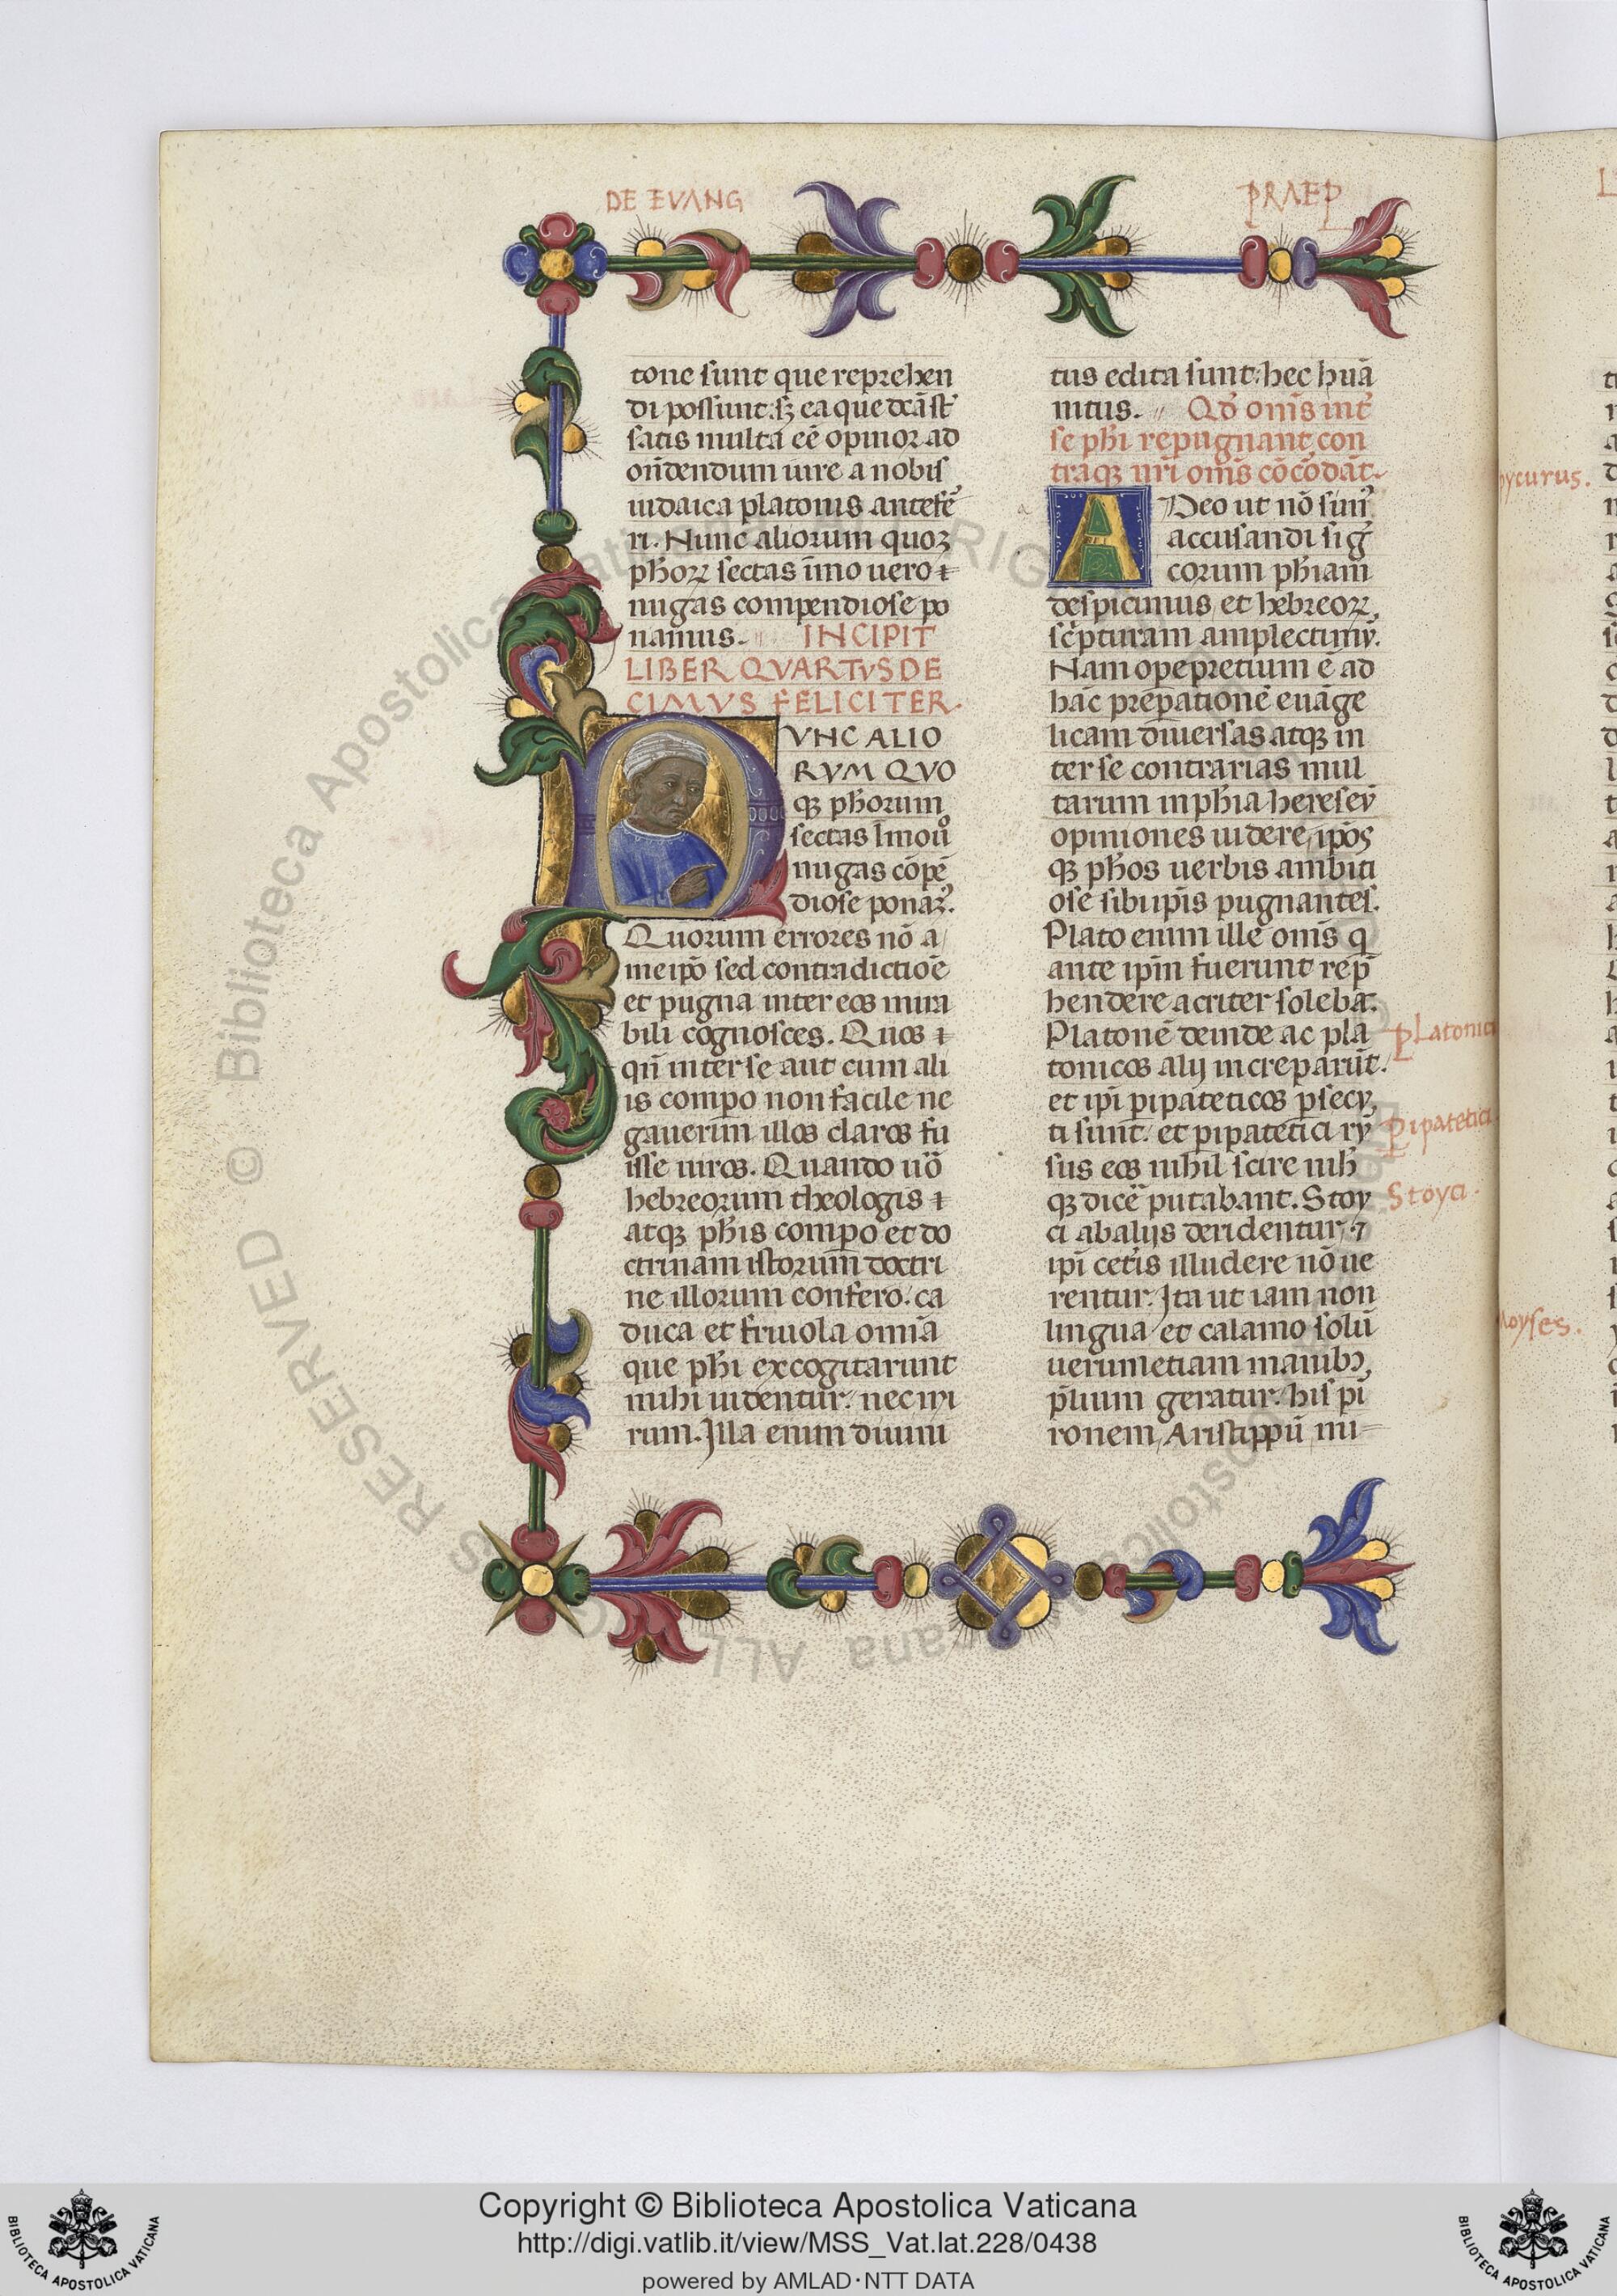 DE EVANG
PRAEP
tone sunt que reprehen
di possunt: sꝫ ea que dc̄ā st̄
satis multa eē opinor ad
on̄dendum iure a nobis
iudaica platonis antefē
ri. Nunc aliorum quoꝫ
ph̄oꝝ sectas īmo uero ⁊
nugas compendiose po
namus. INCIPIT
LIBER QVARTVS DE
CIMVS FELICITER.
VNC ALIO
RVM QVO
qꝫ ph̄orum
sectas īmo uº
nugas cōpē
diose ponaꝫ.
Quorum errores nō a
me ip̄o sed contradictiōe
et pugna inter eos mira
bili cognosces. Quos ⁊
qn̄ inter se aut cum ali
is compo non facile ne
gauerim illos claros fu
isse uiros. Quando uō
hebreorum theologis ⁊
atqꝫ ph̄is compo et do
ctrinam istorum doctri
ne illorum confero. ca
duca et friuola omīa
que phi excogitarunt
mihi uidentur. nec mi
rum. Illa enim diuini
tus edita sunt: hec huā
nitus. Qd̄ om̄s int̄
se phi repugnant con
traqꝫ nr̄i om̄s cōcōdāt.
A Deo ut nō simꝰ
accusandi si g̃
corum ph̄iam
despicimus et hebreoꝝ
sc̄pturam amplectimꝰ.
Nam ope pretium ē ad
hāc prep̄ationē euāge
licam diuersas atqꝫ in
ter se contrarias mul
tarum in ph̄ia hereseꝝ
opiniones uidere, ip̄os
qꝫ ph̄os uerbis ambiti
ose sibi ip̄is pugnantes.
Plato enim ille om̄s q
ante ip̄m fuerunt rep̄
hendere acriter solebat.
Platonē deinde ac pla
tonicos alij increparūt.
et ip̄i pipateticos psecu
ti sunt. et pipatetici ru
sus eos nihil scire nih
qꝫ dicē putabant. Stoy
ci ab alijs deridentur, ⁊
ip̄i cet̄is illudere nō ue
rentur. Ita ut iam non
lingua et calamo solū
uerum etiam manibꝫ
p̄lium geratur. his pi
ronem, Aristippū mi-
Platonici
Pipatetici
Stoyci.
ycurus.
oyses.
Copyright © Biblioteca Apostolica Vaticana
http://digi.vatlib.it/view/MSS_Vat.lat.228/0438
powered by AMLAD·NTT DATA
BIBLIOTECA APOSTOLICA VATICANA
BIBLIOTECA APOSTOLICA VATICANA
© Biblioteca Apostolica Vaticana ALL RIGHTS RESERVED